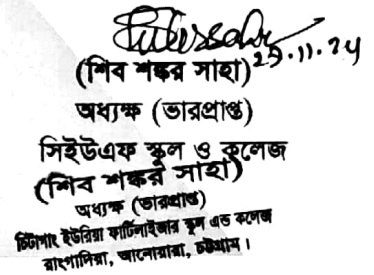 ২৭.১১.২৪
(শিব শঙ্কর সাহা)
অধ্যক্ষ (ভারপ্রাপ্ত)
সিইউএফ স্কুল ও কলেজ
(শিব শঙ্কর সাহা)
অধ্যক্ষ (ভারপ্রাপ্ত)
চিটাগাং ইউরিয়া ফার্টিলাইজার স্কুল এন্ড কলেজ
রাংগাদিয়া, আনোয়ারা, চট্টগ্রাম।